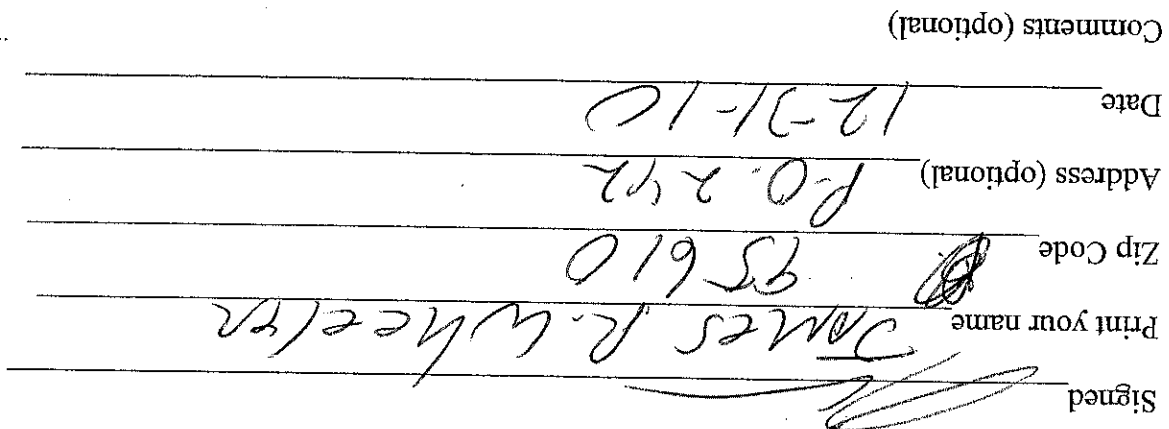 Signed
Print your name James R. Wheeler
Zip Code 95610
Address (optional) P.O. 242
Date 12-31-10
Comments (optional)